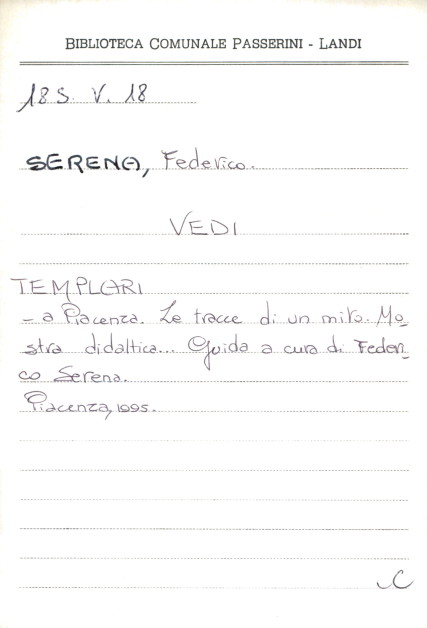 BIBLIOTECA COMUNALE PASSERINI - LANDI
18 S. V. 18
SERENA, Federico.
VEDI
TEMPLARI
- a Piacenza. Le tracce di un mito. Mo-
stra didattica... Guida a cura di Federi-
co Serena.
Piacenza, 1995.
C